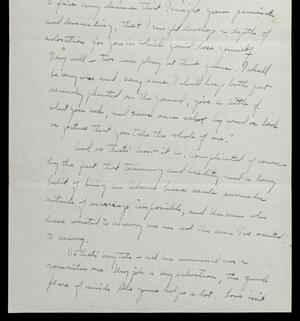 a fair my desires that I might grow passionate
and demanding, that I might develop a depth of
adoration for you in which you'd lose yourself.
Very well - two can play at that game. I shall
be very wise and very sure. I shall keep both feet
securely planted on the ground, give a little of
what you ask, and never once by word or look
or gesture that you take the whole of me."
And so that's how it is, complicated of course
by the fact that training and heredity and a long
habit of being an have made surrender
outside of marriage impossible, and the men who
have wanted to marry me are not the ones I've wanted
to marry.
So that's my - not an unusual nor a
romantic one. My job is my salvation, the quick
flare of minds like yours helps a lot. Love isn't